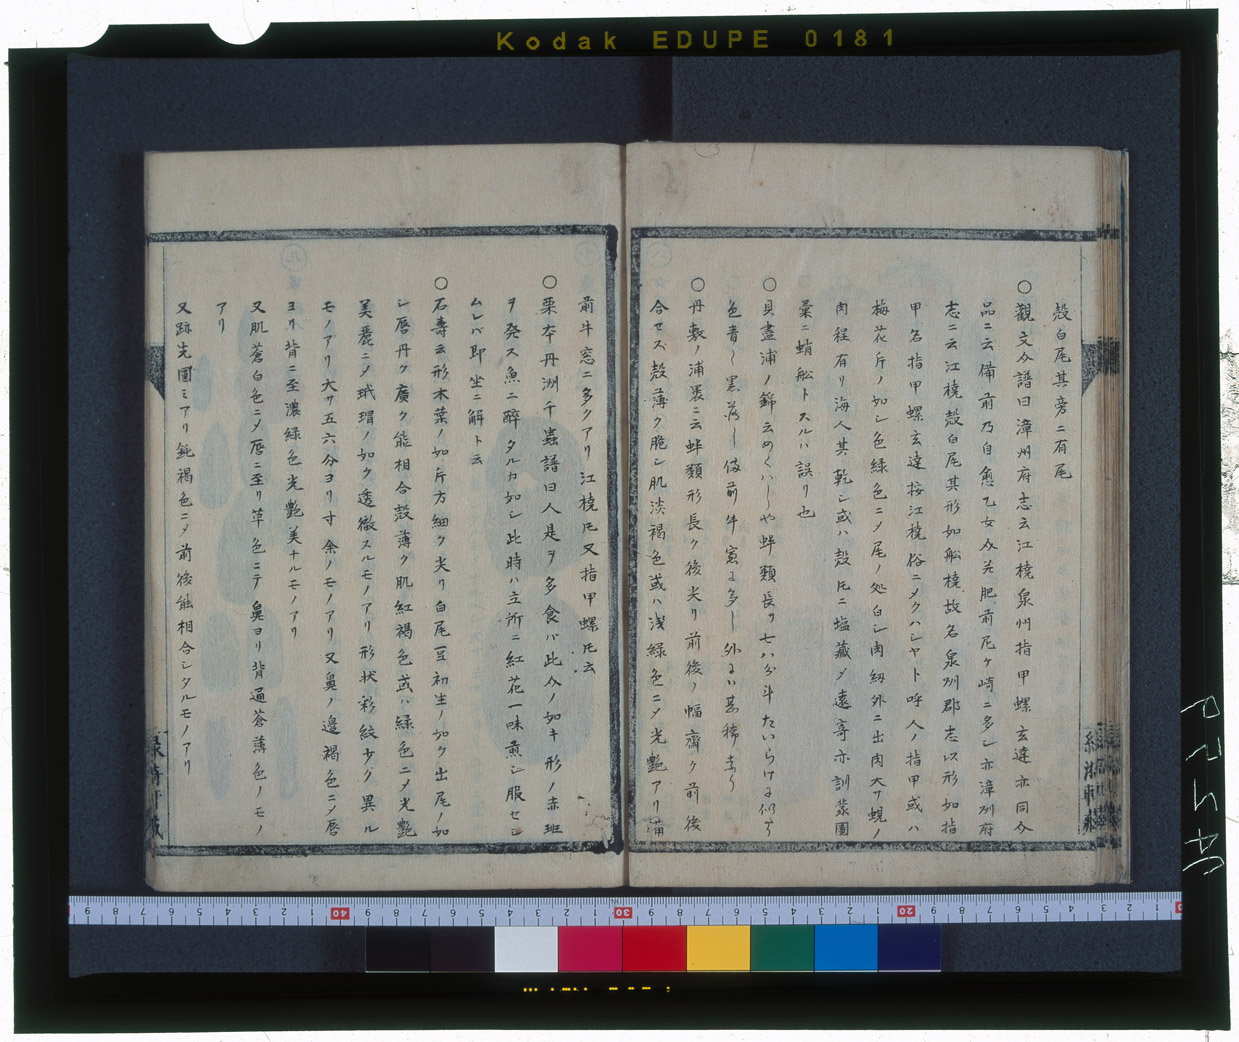 Kodak EDUPE 0181
殻白尾其旁ニ有尾
○觀文介譜曰漳州府志云江橈泉州指甲螺玄達亦同今
品ニ云備前乃自愈乙女 肥前尼ケ崎ニ多シ亦漳州府
志ニ云江橈殻白尾其形如船橈故名泉州郡志以形如指
甲名指甲螺玄達按江橈俗ニメクハシヤト呼人ノ指甲或ハ
梅花斤ノ如シ色緑色ニ〆尾ノ処白シ肉 外ニ出肉大サ蜆ノ
肉程有リ海人其乾シ或ハ殻厇ニ塩蔵〆遠寄亦訓蒙圖
彙ニ蛸舩トスルハ誤リ也
○貝盡浦ノ錦云めくハしや蚌類長サ七八分斗たいらけに似す
色青く黒 し 前牛窓に多し外にハ甚稀まり
○丹敷ノ浦裏ニ云蚌類形長ク後尖リ前後ノ幅齊ク前後
合セズ殻薄ク脆シ肌淡褐色或ハ浅緑色ニ〆光艶アリ備
前牛窓ニ多クアリ江橈厇又指甲螺厇云
○栗本丹洲千蟲譜曰人是ヲ多食バ此介ノ如キ形ノ赤斑
ヲ発ス魚ニ醉タルカ如シ此時ハ立所ニ紅花一味煎シ服セシ
ムレバ即坐ニ解ト云
○石壽云形木葉ノ如斤方細ク尖リ白尾豆初生ノ如ク出尾ノ如
シ唇丹ケ廣ク能相合殻薄ク肌紅褐色或ハ緑色ニ〆光艶
美麗ニ〆玳瑁ノ如ク透徹スルモノアリ形状彩紋少グ異ル
モノアリ大サ五六分ヨリ寸余ノモノアリ又鼻ノ邉褐色ニ〆唇
ヨリ背ニ至濃緑色光艶美ナルモノアリ
又肌蒼白色ニ〆唇ニ至リ草色ニテ鼻ヨリ背通蒼薄色ノモノ
アリ
又跡先圓ミアリ鈍褐色ニ〆前後能相合シタルモノアリ